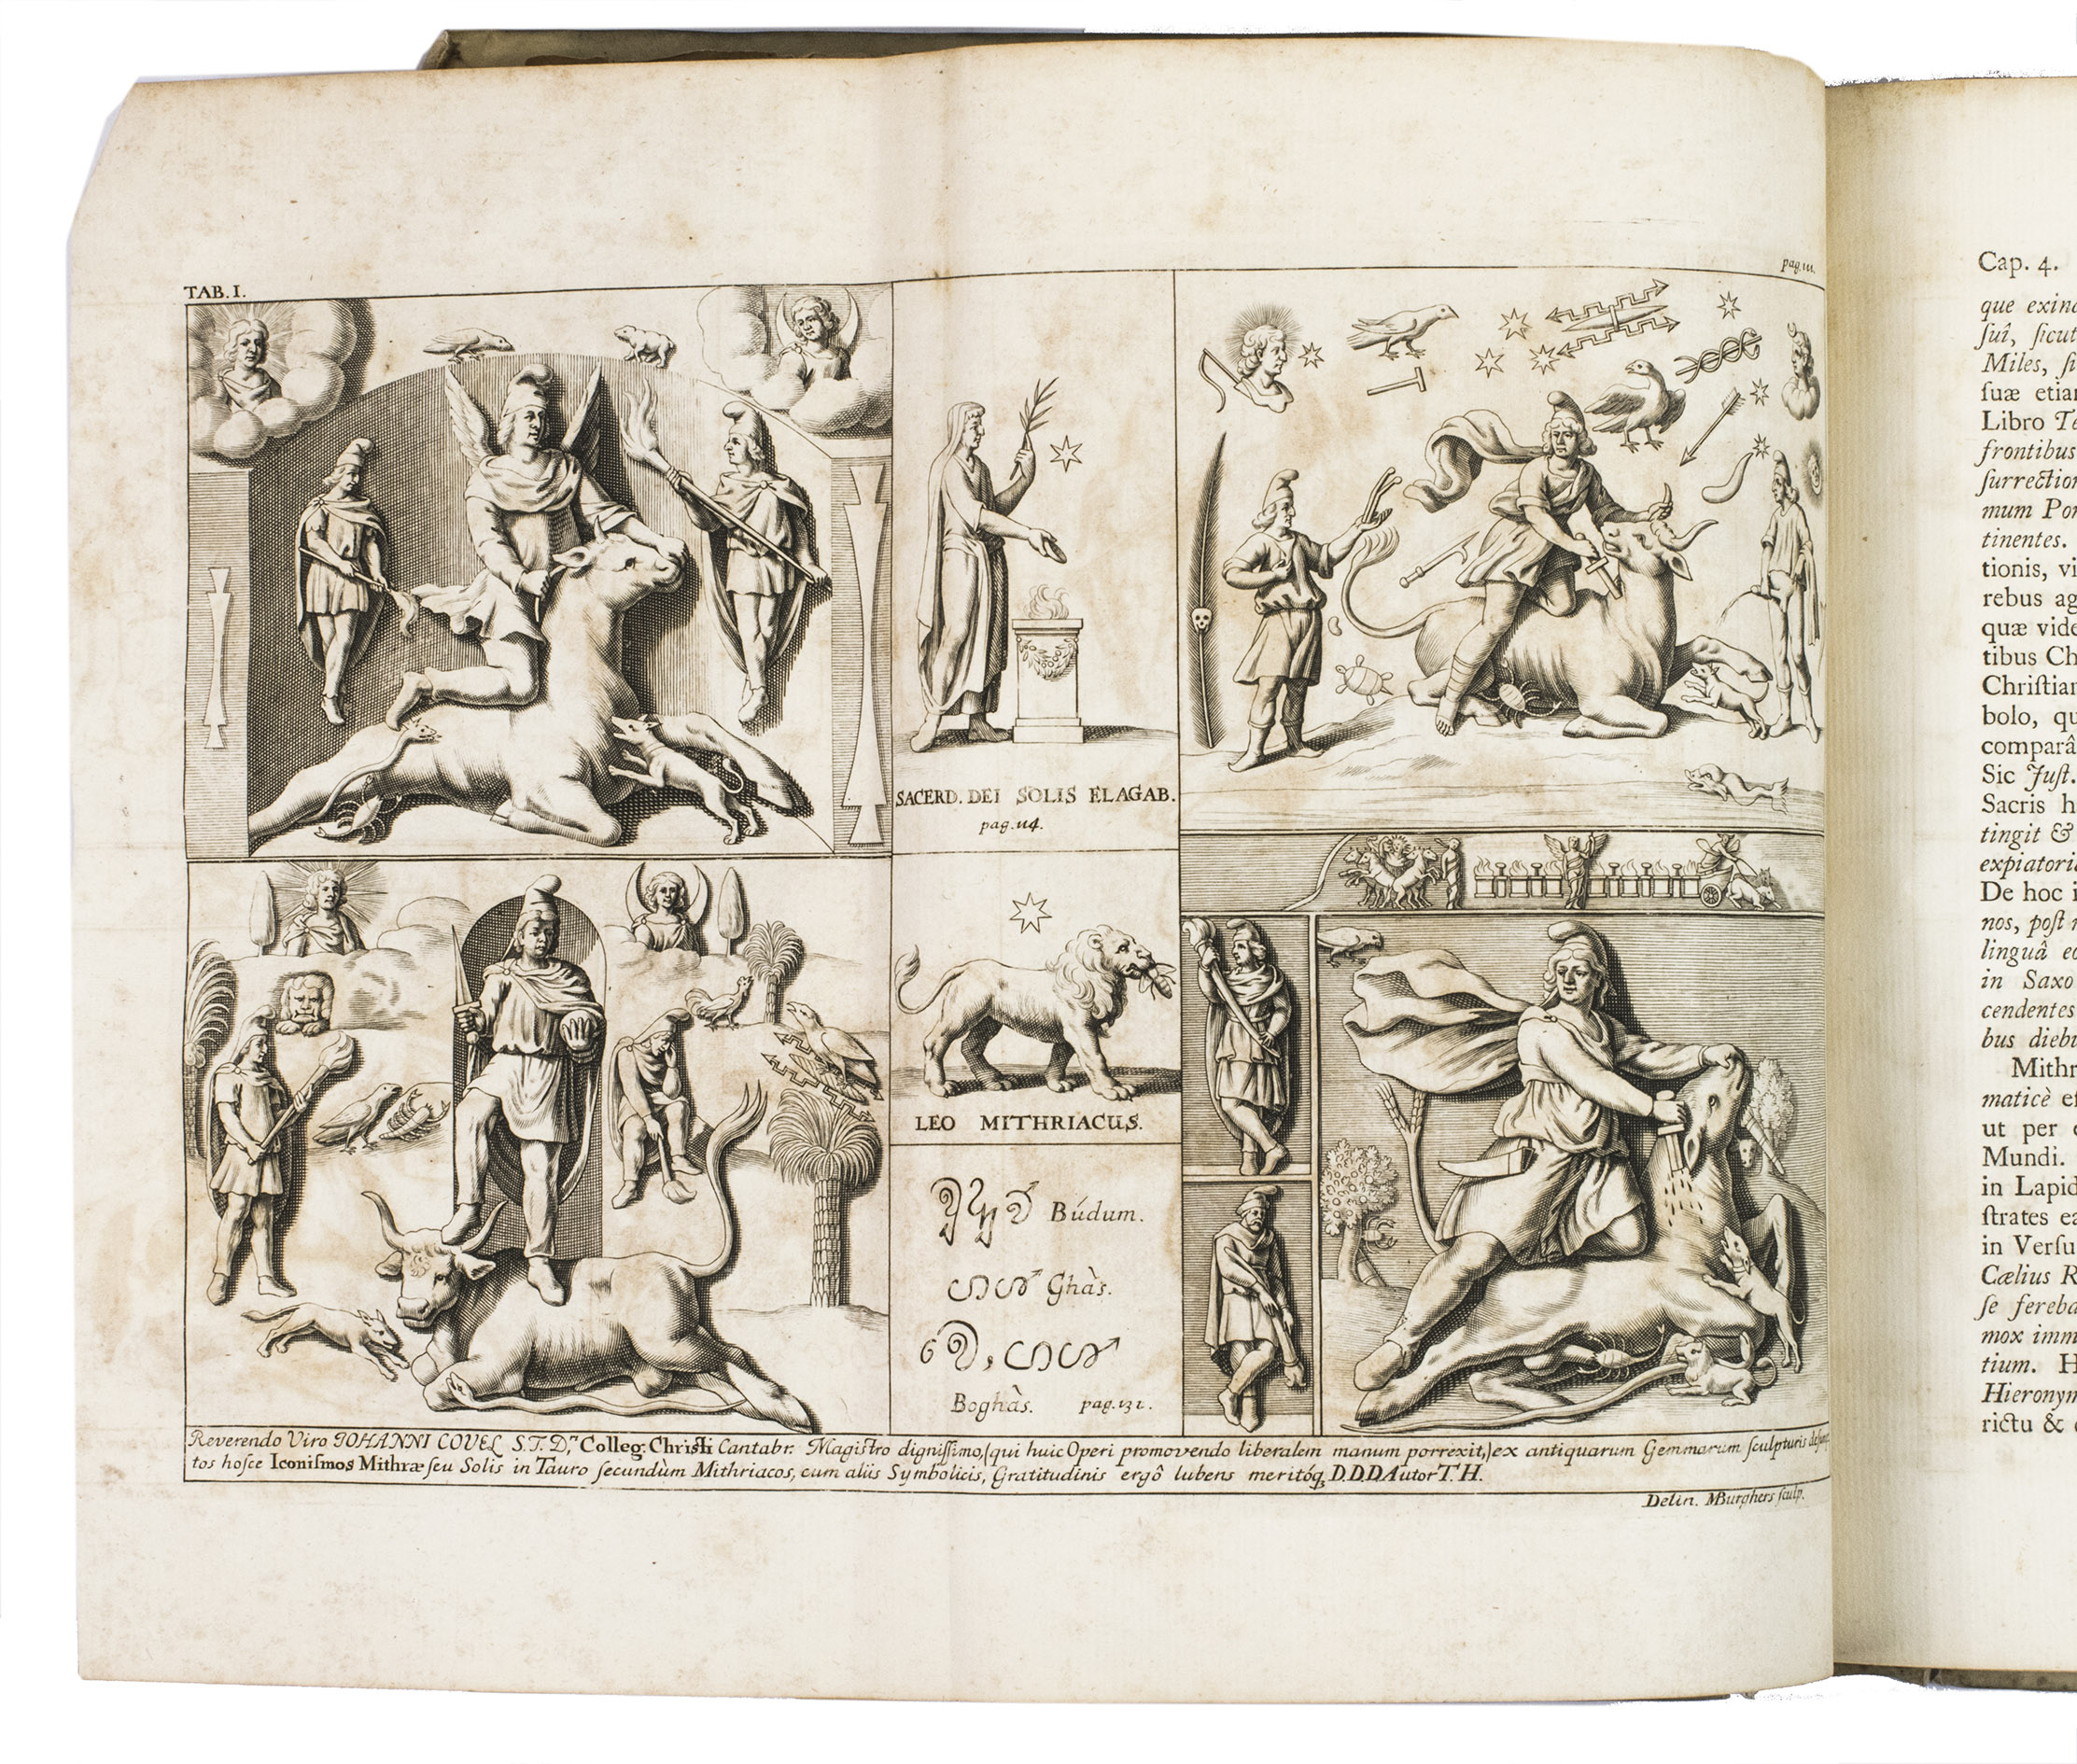 TAB. I.
pag. 111.
SACERD. DEI SOLIS ELAGAB.
pag. 114.
LEO MITHRIACUS.
Búdum.
Ghàs.
Boghàs. pag. 131.
Reverendo Viro JOHANNI COVEL S.T.D.r Colleg: Christi Cantabr: Magistro dignissimo, (qui huic Operi promovendo liberalem manum porrexit,) ex antiquarum Gemmarum sculpturis desump
tos hosce Iconismos Mithræ seu Solis in Tauro secundùm Mithriacos, cum aliis Symbolicis, Gratitudinis ergô lubens meritóq; D.D.D Autor T.H.
Delin. MBurghers sculp.
Cap. 4.
que exin
suî, sicut
Miles, si
suæ etiam
Libro Te
frontibus
surrection
mum Por
tinentes.
tionis, vi
rebus ag
quæ vide
tibus Ch
Christian
bolo, qu
comparâ
Sic Just.
Sacris h
tingit &
expiatori
De hoc i
nos, post
linguâ e
in Saxo
cendentes
bus diebu
Mithr
maticè e
ut per
Mundi.
in Lapid
strates ea
in Versu
Cælius R
se fereba
mox imm
tium. H
Hieronym
rictu &